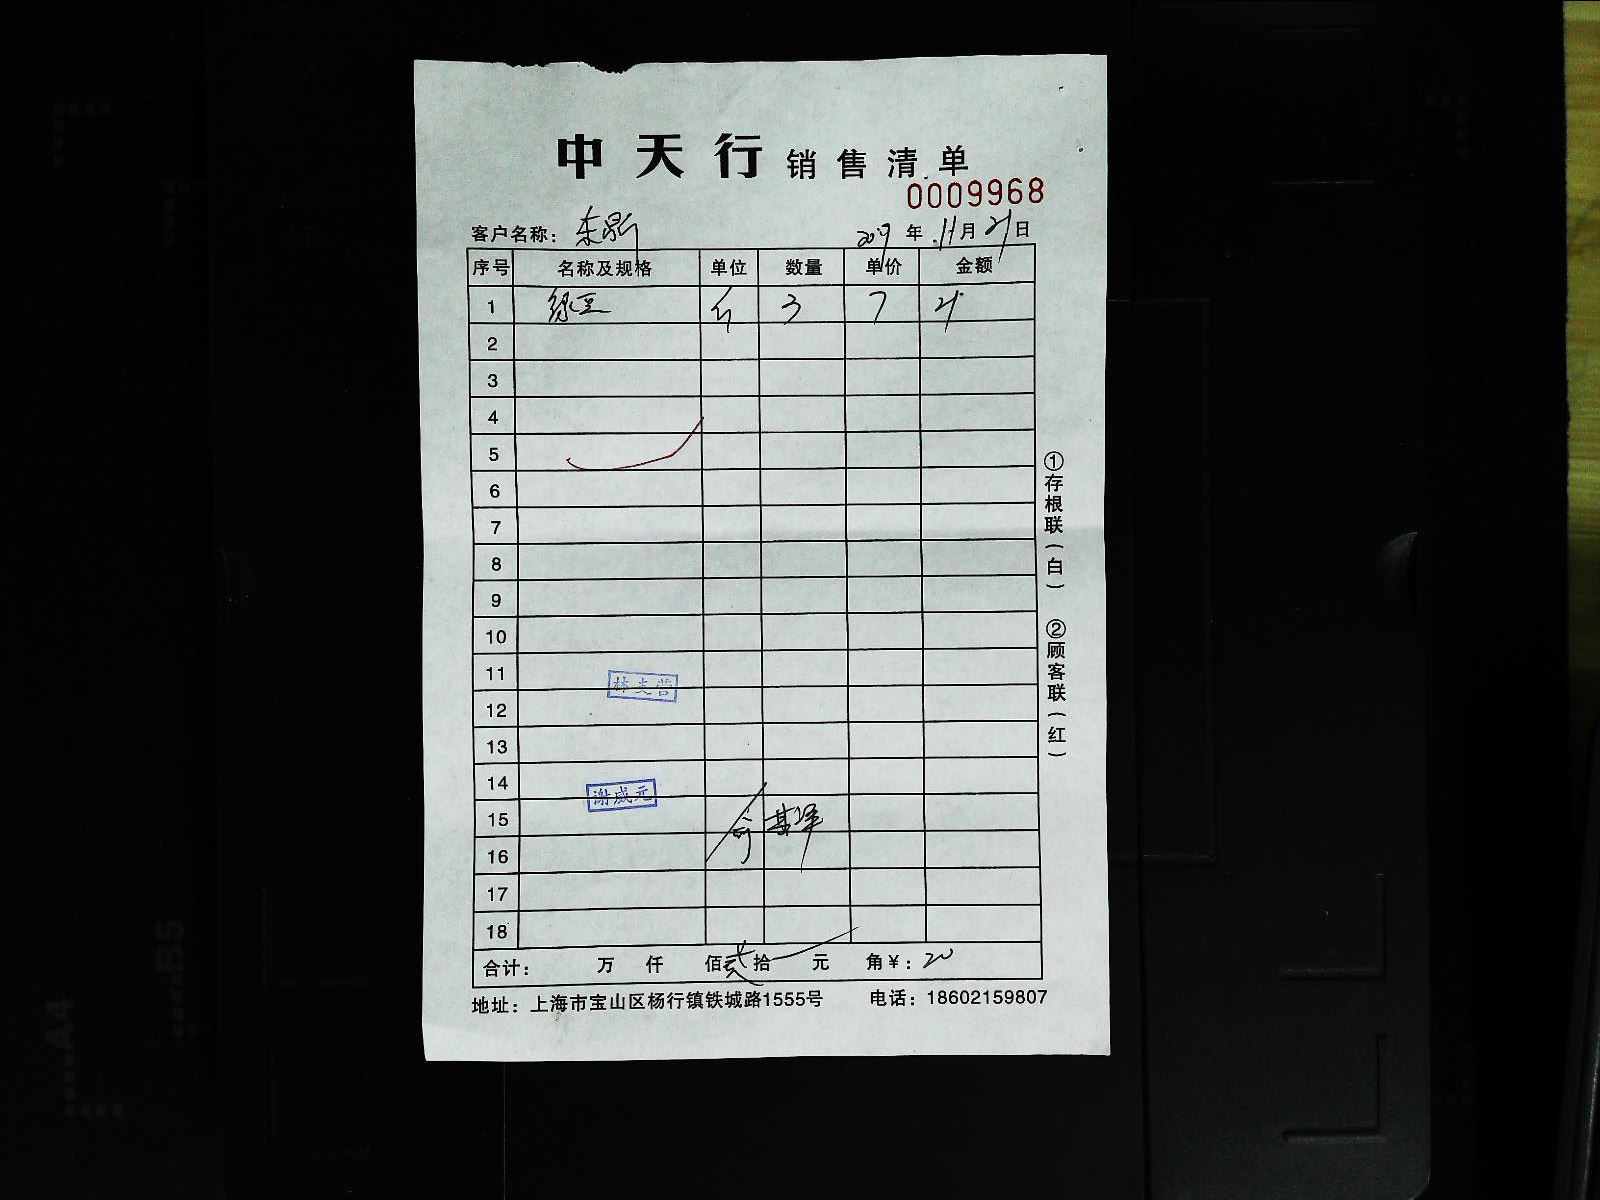 中天行 销售清单
0009968
客户名称：东鼎 2019年11月21日
序号 名称及规格 单位 数量 单价 金额
1 绿豆 斤 3 7 21
2
3
4
5
6
7
8
9
10
11 林支营
12
13
14 谢盛元
15
16
17
18
合计： 万 仟 佰 贰拾 元 角￥：20
地址：上海市宝山区杨行镇铁城路1555号 电话：18602159807
①存根联（白） ②顾客联（红）
A4
B5